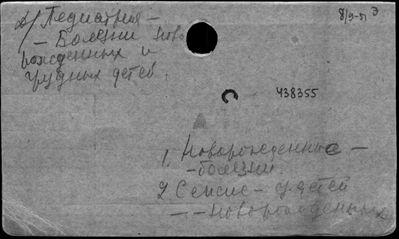 д/ Педиатрия -
8/9-51 Э
- Болезни ново
рожденных и
грудных детей.
438355
1, Новорожденные -
- болезни.
2, Сепсис - у детей
- - новорожденных